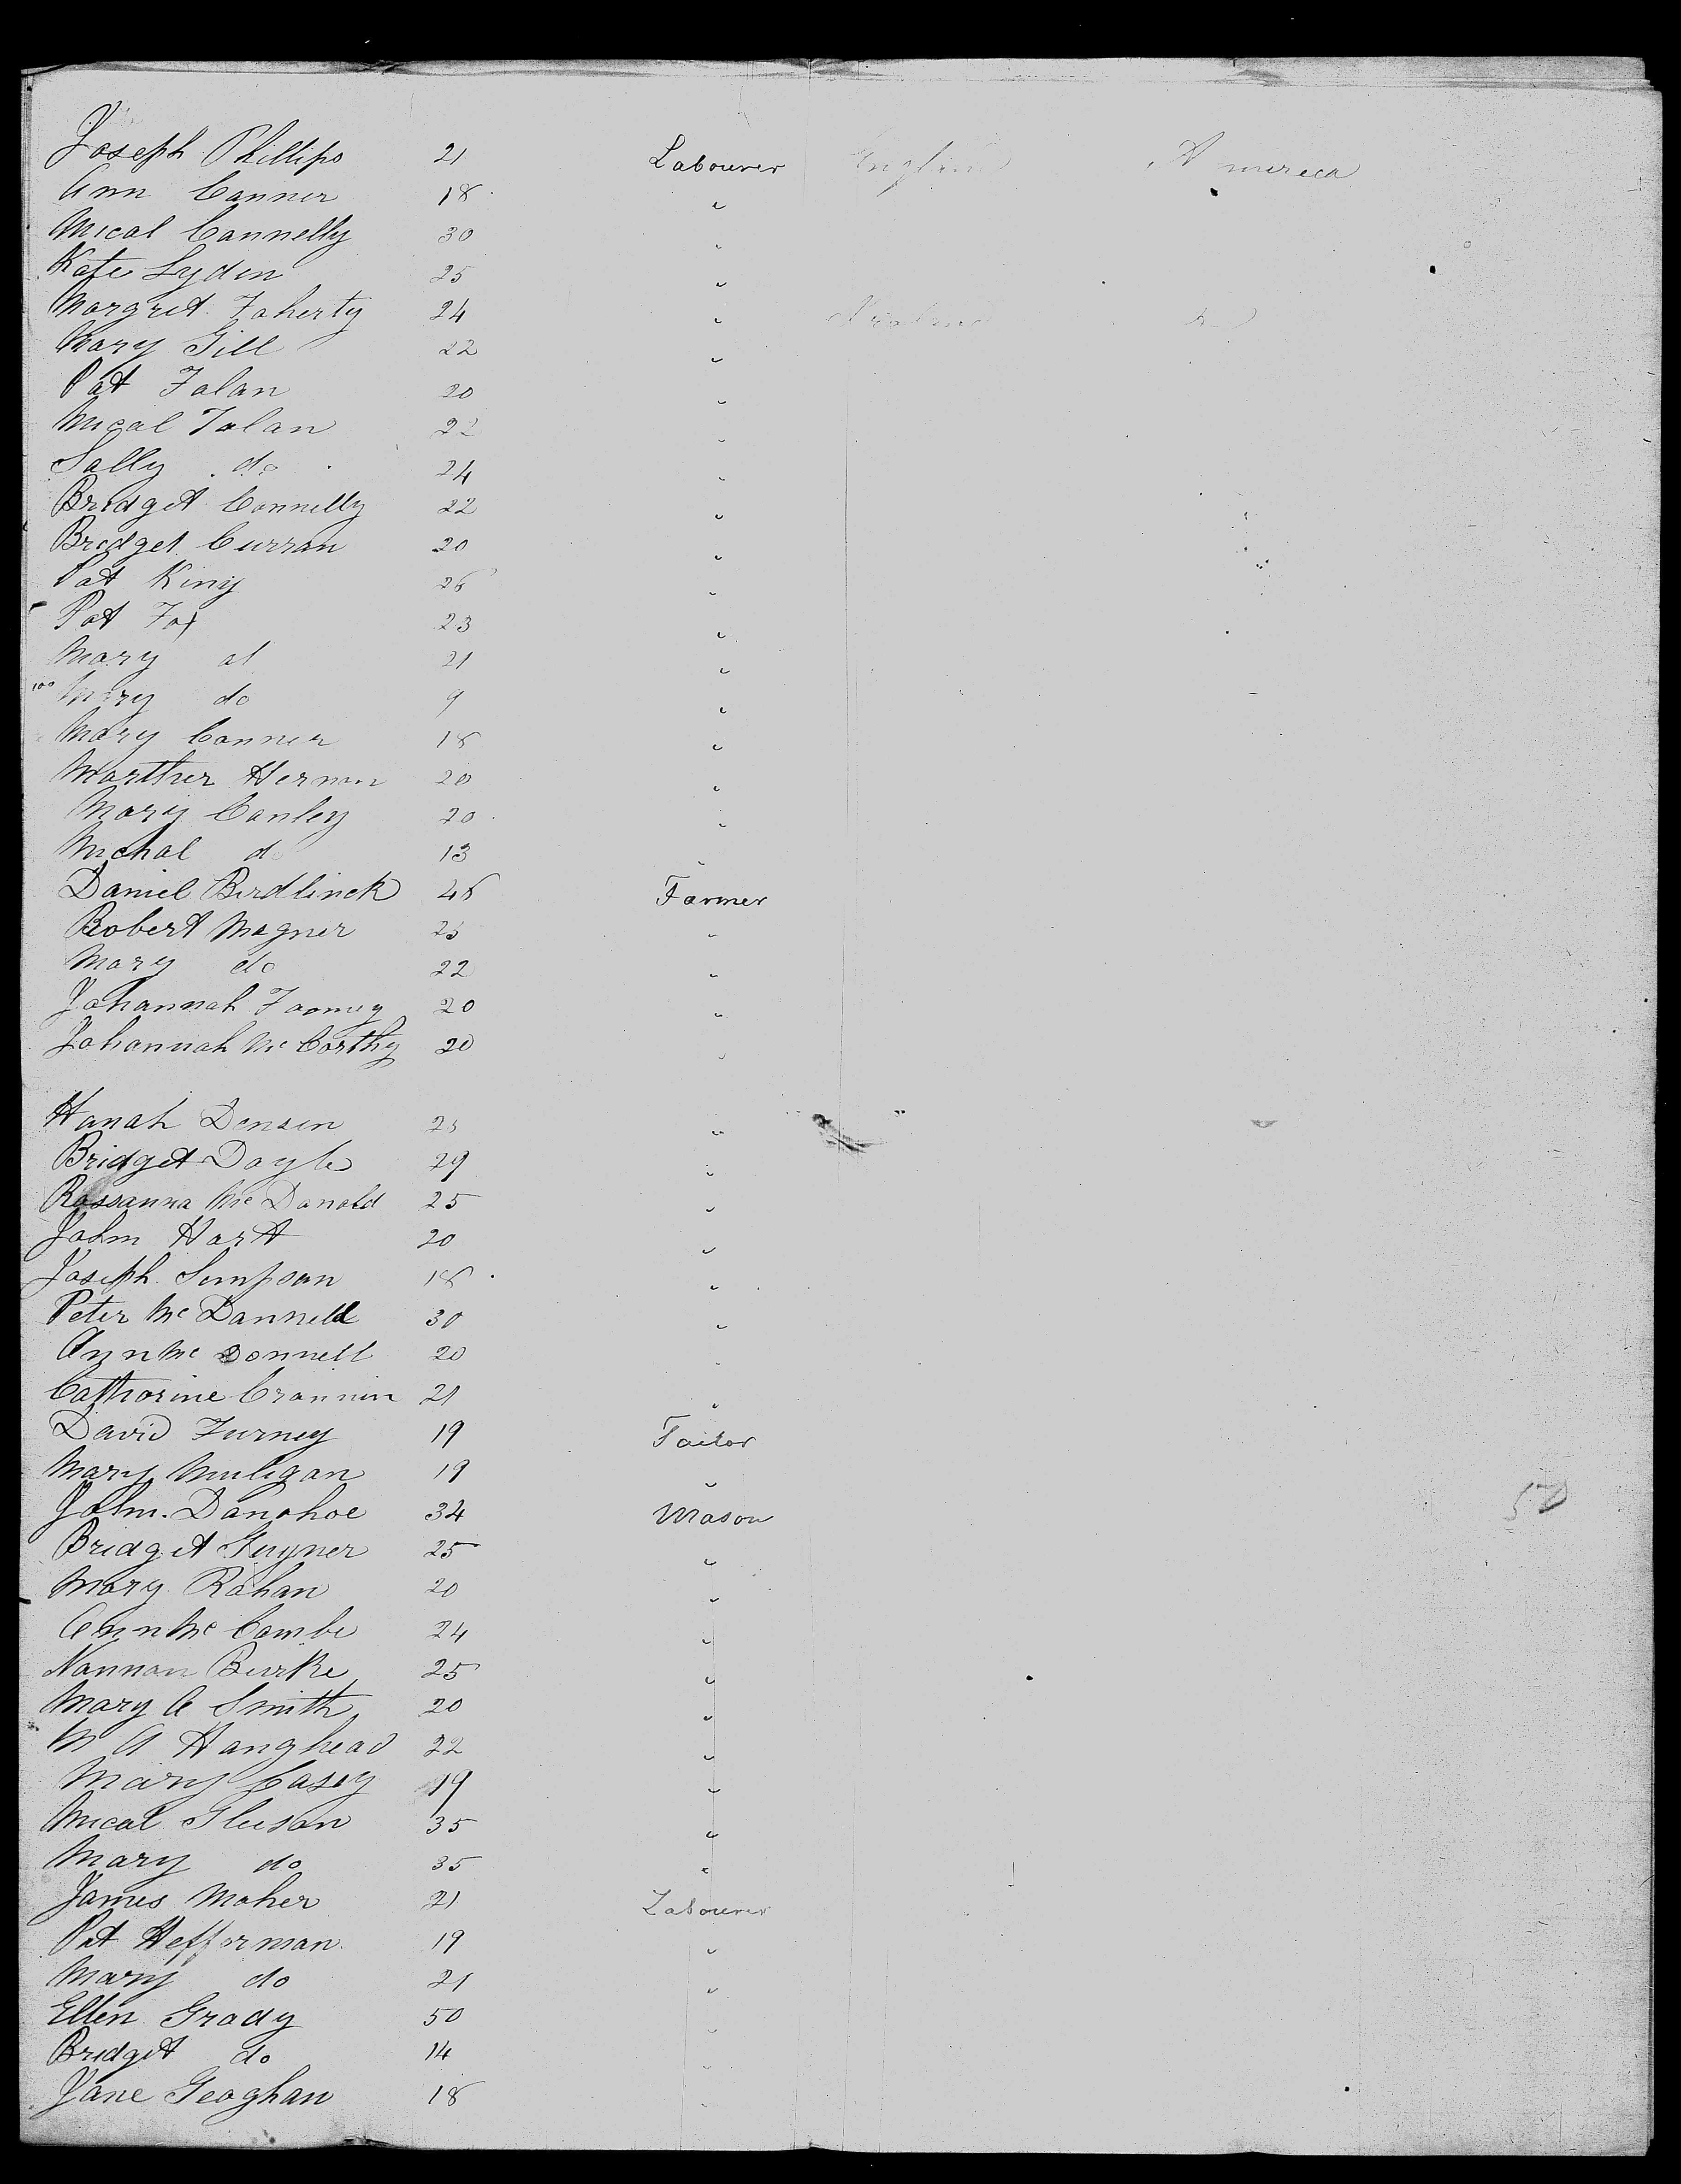 Joseph Phillips 21 Labourer England America
Ann Conner 18 "
Mical Connelly 30 "
Kate Lyden 25 "
Margret Faherty 24 "
Mary Gill 22 "
Pat Folan 20 "
Mical Folan 22 "
Sally do 24 "
Bridget Connelly 22 "
Bridget Curran 20 "
Pat King 26 "
Pat Fox 23 "
Mary 21 "
100 Mary do 9 "
Mary Conner 18 "
Marther Hernon 20 "
Mary Conley 20 "
Michal do 13 "
Daniel Birdlinek 48 Farmer
Robert Magner 25 "
Mary do 22 "
Johannah Toomey 20 "
Johannah McCorthy 20 "
Hanah Densen "
Bridget Doyle 29 "
Rossanna McDonald 25 "
John Hart 20 "
Joseph Simpson 18 "
Peter McDannell 30 "
Ann McDonnell 20 "
Cathorine Cronnin 21 "
David Furney 19 Tailor
Mary Muligan 19 "
John Donohoe 34 Mason
Bridget Guyner 25 "
Mary Rohan 20 "
Ann McCombe 24 "
Nannan Burke 25 "
Mary A Smith 20 "
M A Hanghead 22 "
Mary Casey 19 "
Mical Gleeson 35 "
Mary do 35 "
James Moher 21 Labourer
Pat Hefforman 19 "
Mary do 21 "
Ellen Grady 50 "
Bridget do 14 "
Jane Geoghan 18 "